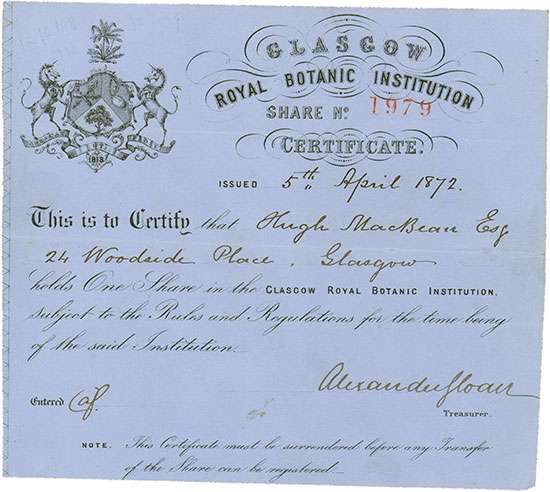 GLASGOW
ROYAL BOTANIC INSTITUTION
SHARE No. 1979
CERTIFICATE.
1818
ISSUED 5th April 1872.
This is to Certify that Hugh MacBean Esq
24 Woodside Place, Glasgow
holds One Share in the GLASGOW ROYAL BOTANIC INSTITUTION,
subject to the Rules and Regulations for the time being
of the said Institution.
Alexander Sloan
Entered
Treasurer.
NOTE. This Certificate must be surrendered before any Transfer
of the Share can be registered.